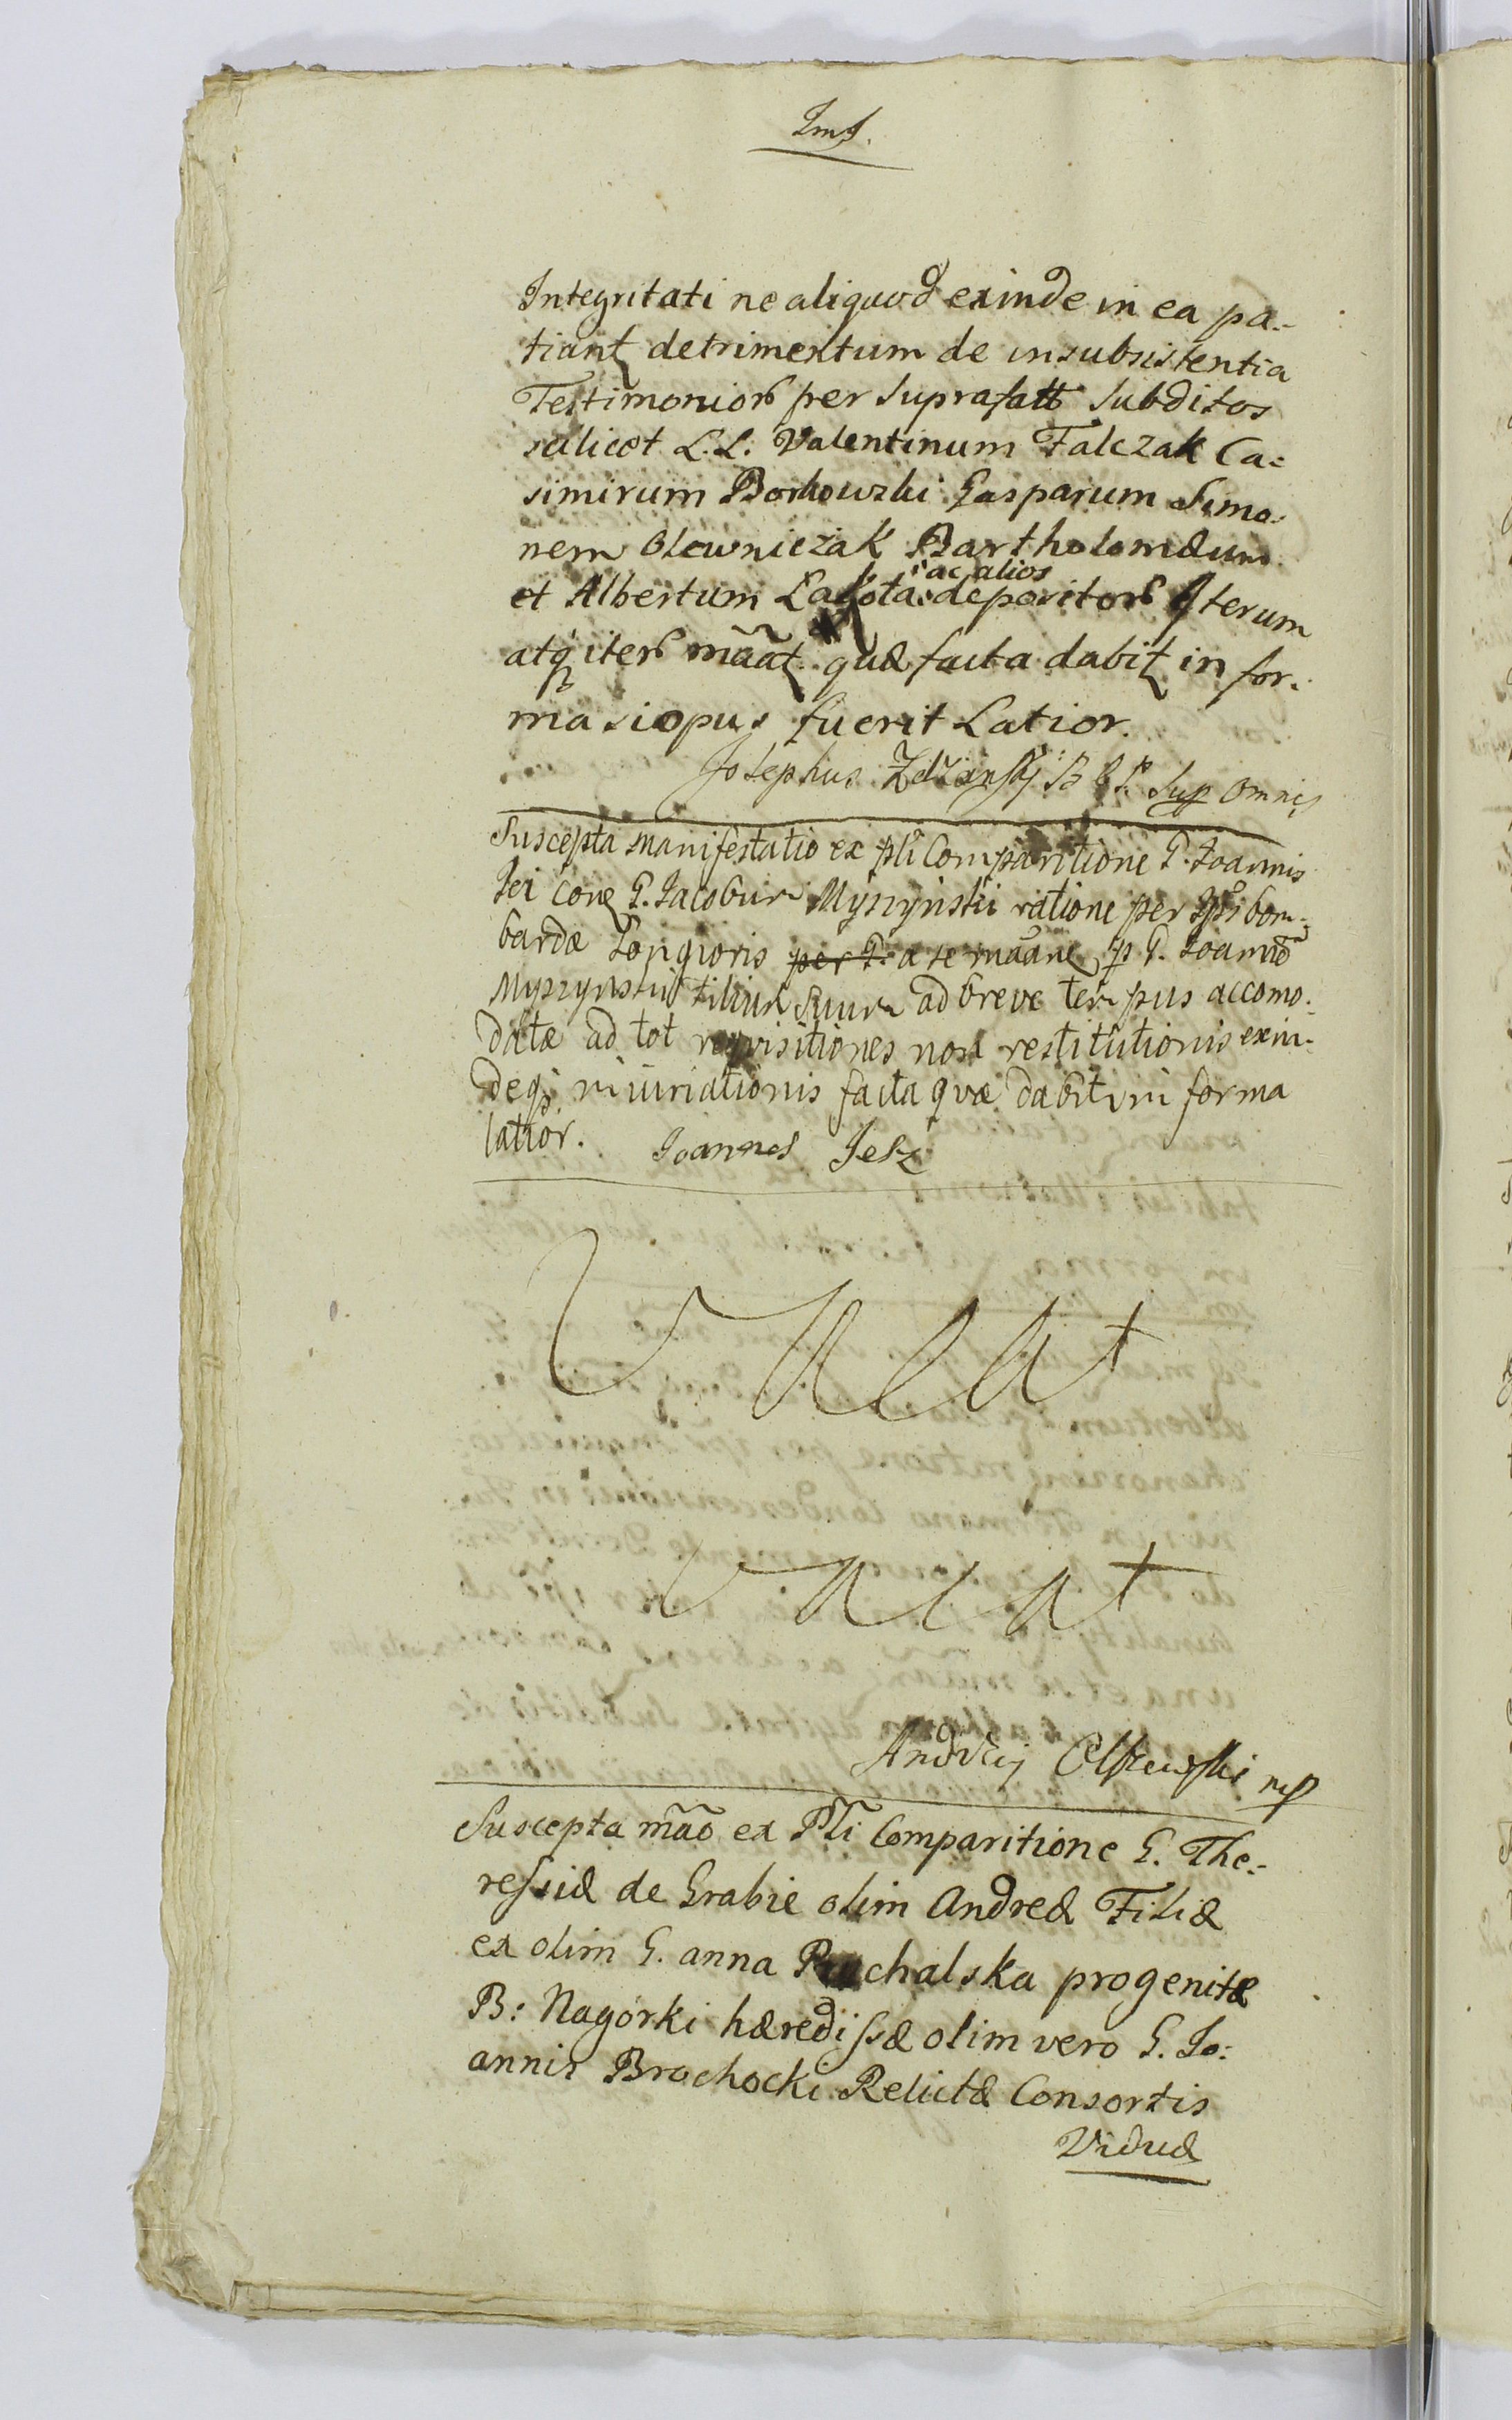 Integritati ne aliquod exinde in ea pa-
tiant detrimentum de insubsistentia
Testimonior per suprafatt subditos
scilicet L.L. Valentinum Falczak Ca=
simirum Borkowski Gasparum Simo-
nem Olowniczak Bartholomæum
ac alios
et Albertum Lakota depositor Iterum
atq iter mãat quæ facta dabit in for-
ma si opus fuerit Latior.
Josephus Zdzański B G P. Sup Omnes
Suscepta manifestatio ex pti Comparitione G. Joannis
Jei cora G. Jacobum Myszynski ratione per Ips bom-
bardæ longioris per G. a se mãane p G. Joannē
Myszynski filium suum ad breve tempus accomo-
datæ ad tot reqvisitiones non restitutionis exin-
deq iniuriationis facta qvæ dabit in forma
latior. Joannes Jesz
Vacat
Vacat
Andrzej Olszewski mp
Suscepta mão ex Pti Comparitione G. The=
ressiæ de Grabie olim Andreæ Filiæ
ex olim G. anna Puchalska progenitæ
B: Nagórki hæredissæ olim vero G. Jo:
annis Brochocki Relictæ Consortis
Viduæ